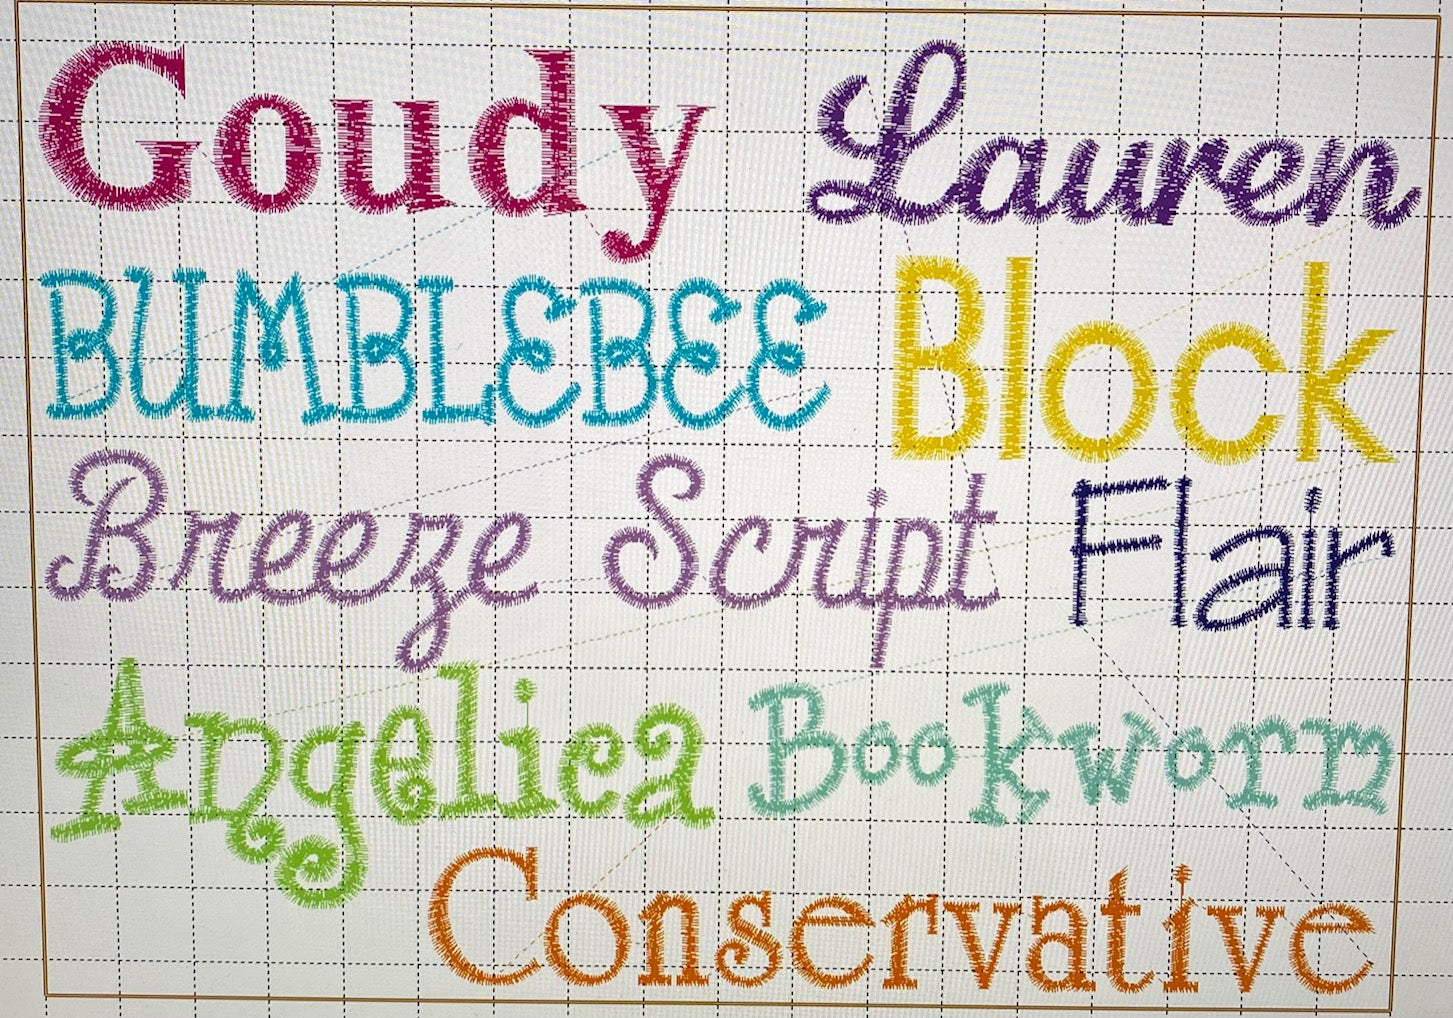 Goudy Lauren
BUMBLEBEE Block
Breeze Script Flair
Angelica Bookworm
Conservative